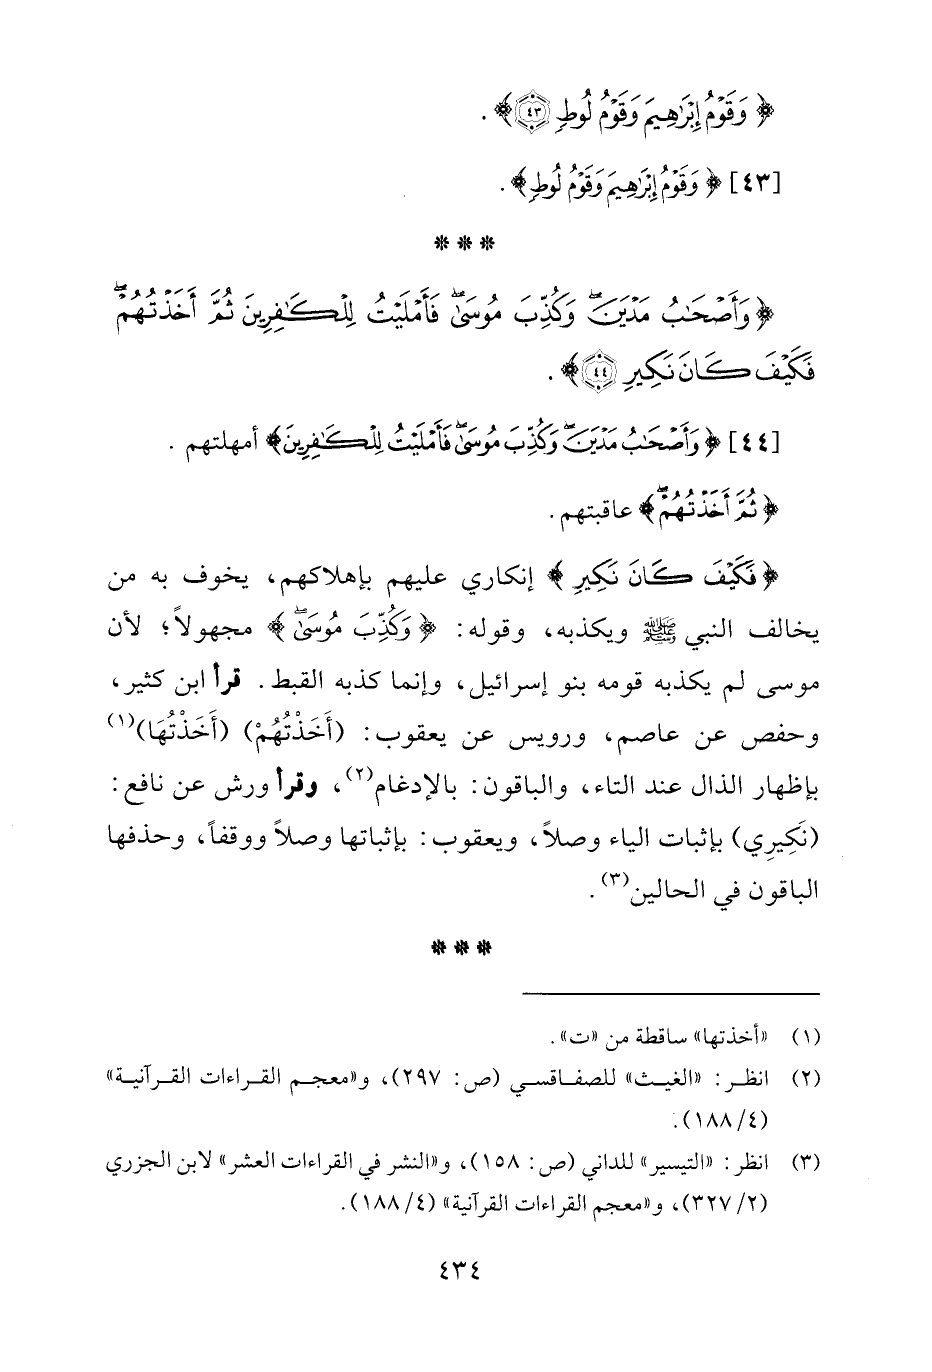 ﴿ وَقَوْمُ إِبْرَاهِيمَ وَقَوْمُ لُوطٍ ٤٣ ﴾ .
[٤٣] ﴿ وَقَوْمُ إِبْرَاهِيمَ وَقَوْمُ لُوطٍ ﴾ .
* * *
﴿ وَأَصْحَابُ مَدْيَنَ ۖ وَكُذِّبَ مُوسَىٰ ۖ فَأَمْلَيْتُ لِلْكَافِرِينَ ثُمَّ أَخَذْتُهُمْ ۖ
فَكَيْفَ كَانَ نَكِيرِ ٤٤ ﴾ .
[٤٤] ﴿ وَأَصْحَابُ مَدْيَنَ ۖ وَكُذِّبَ مُوسَىٰ ۖ فَأَمْلَيْتُ لِلْكَافِرِينَ ﴾ أمهلتهم .
﴿ ثُمَّ أَخَذْتُهُمْ ۖ ﴾ عاقبتهم .
﴿ فَكَيْفَ كَانَ نَكِيرِ ﴾ إنكاري عليهم بإهلاكهم، يخوف به من
يخالف النبي ﷺ ويكذبه، وقوله: ﴿ وَكُذِّبَ مُوسَىٰ ۖ ﴾ مجهولاً؛ لأن
موسى لم يكذبه قومه بنو إسرائيل، وإنما كذبه القبط. قرأ ابن كثير،
وحفص عن عاصم، ورويس عن يعقوب: (أَخَذْتُهُمْ) (أَخَذْتُهَا)(١)
بإظهار الذال عند التاء، والباقون: بالإدغام(٢)، وقرأ ورش عن نافع:
(نَكِيرِي) بإثبات الياء وصلاً، ويعقوب: بإثباتها وصلاً ووقفاً، وحذفها
الباقون في الحالين(٣).
* * *
(١) «أخذتها» ساقطة من «ت».
(٢) انظر: «الغيث» للصفاقسي (ص: ٢٩٧)، و«معجم القراءات القرآنية»
(٤/ ١٨٨).
(٣) انظر: «التيسير» للداني (ص: ١٥٨)، و«النشر في القراءات العشر» لابن الجزري
(٢/ ٣٢٧)، و«معجم القراءات القرآنية» (٤/ ١٨٨).
٤٣٤